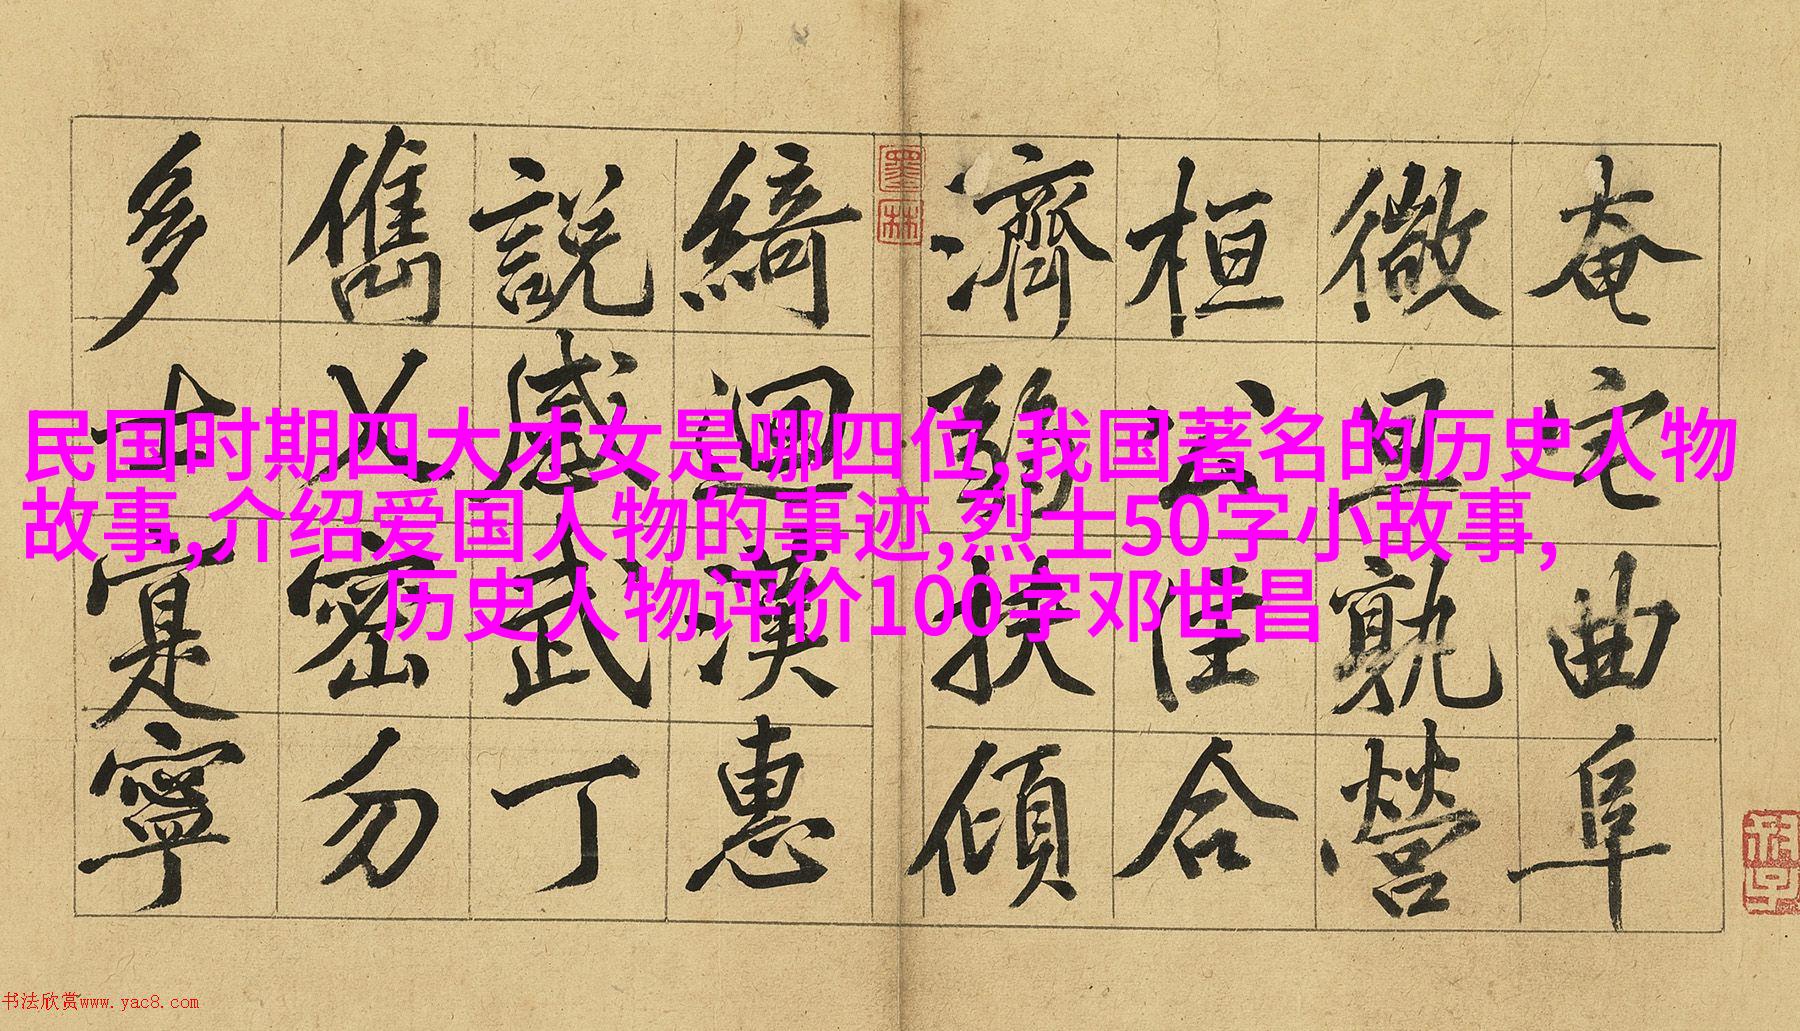 奄宅曲阜
微旦孰營
桓公匡合
濟弱扶傾
綺迴漢惠
說感武丁
儁乂密勿
多士寔寧
墨林
民国时期四大才女是哪四位,我国著名的历史人物
故事,介绍爱国人物的事迹,烈士50字小故事,
历史人物评价100字邓世昌
书法欣赏www.yac8.com